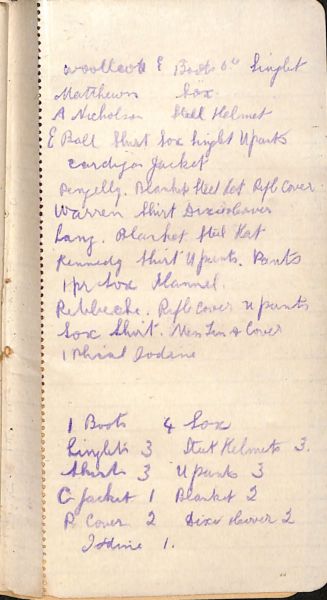 Woollcott & Boots 6" Singlet
Matthews Sox.
A Nicholson Steel Helmet
E Ball Shirt Sox Singlet Upants
Cardigan Jacket
Pengelly. Blanket Steel Hat Rifle Cover
Warren Shirt Dixie & Cover
Lang. Blanket Steel Hat
Kennedy Shirt U pants. Pants
1 pr Sox Flannel.
Rebbeche. Rifle Cover U pants
Sox Shirt. Mess Tin & Cover
1 Phial Iodine
1 Boots 4 Sox
Singlets 3 Steel Helmets 3.
Shirts 3 U pants 3
C Jacket 1 Blanket 2
R Cover 2 Dixie & cover 2
Iodine 1.